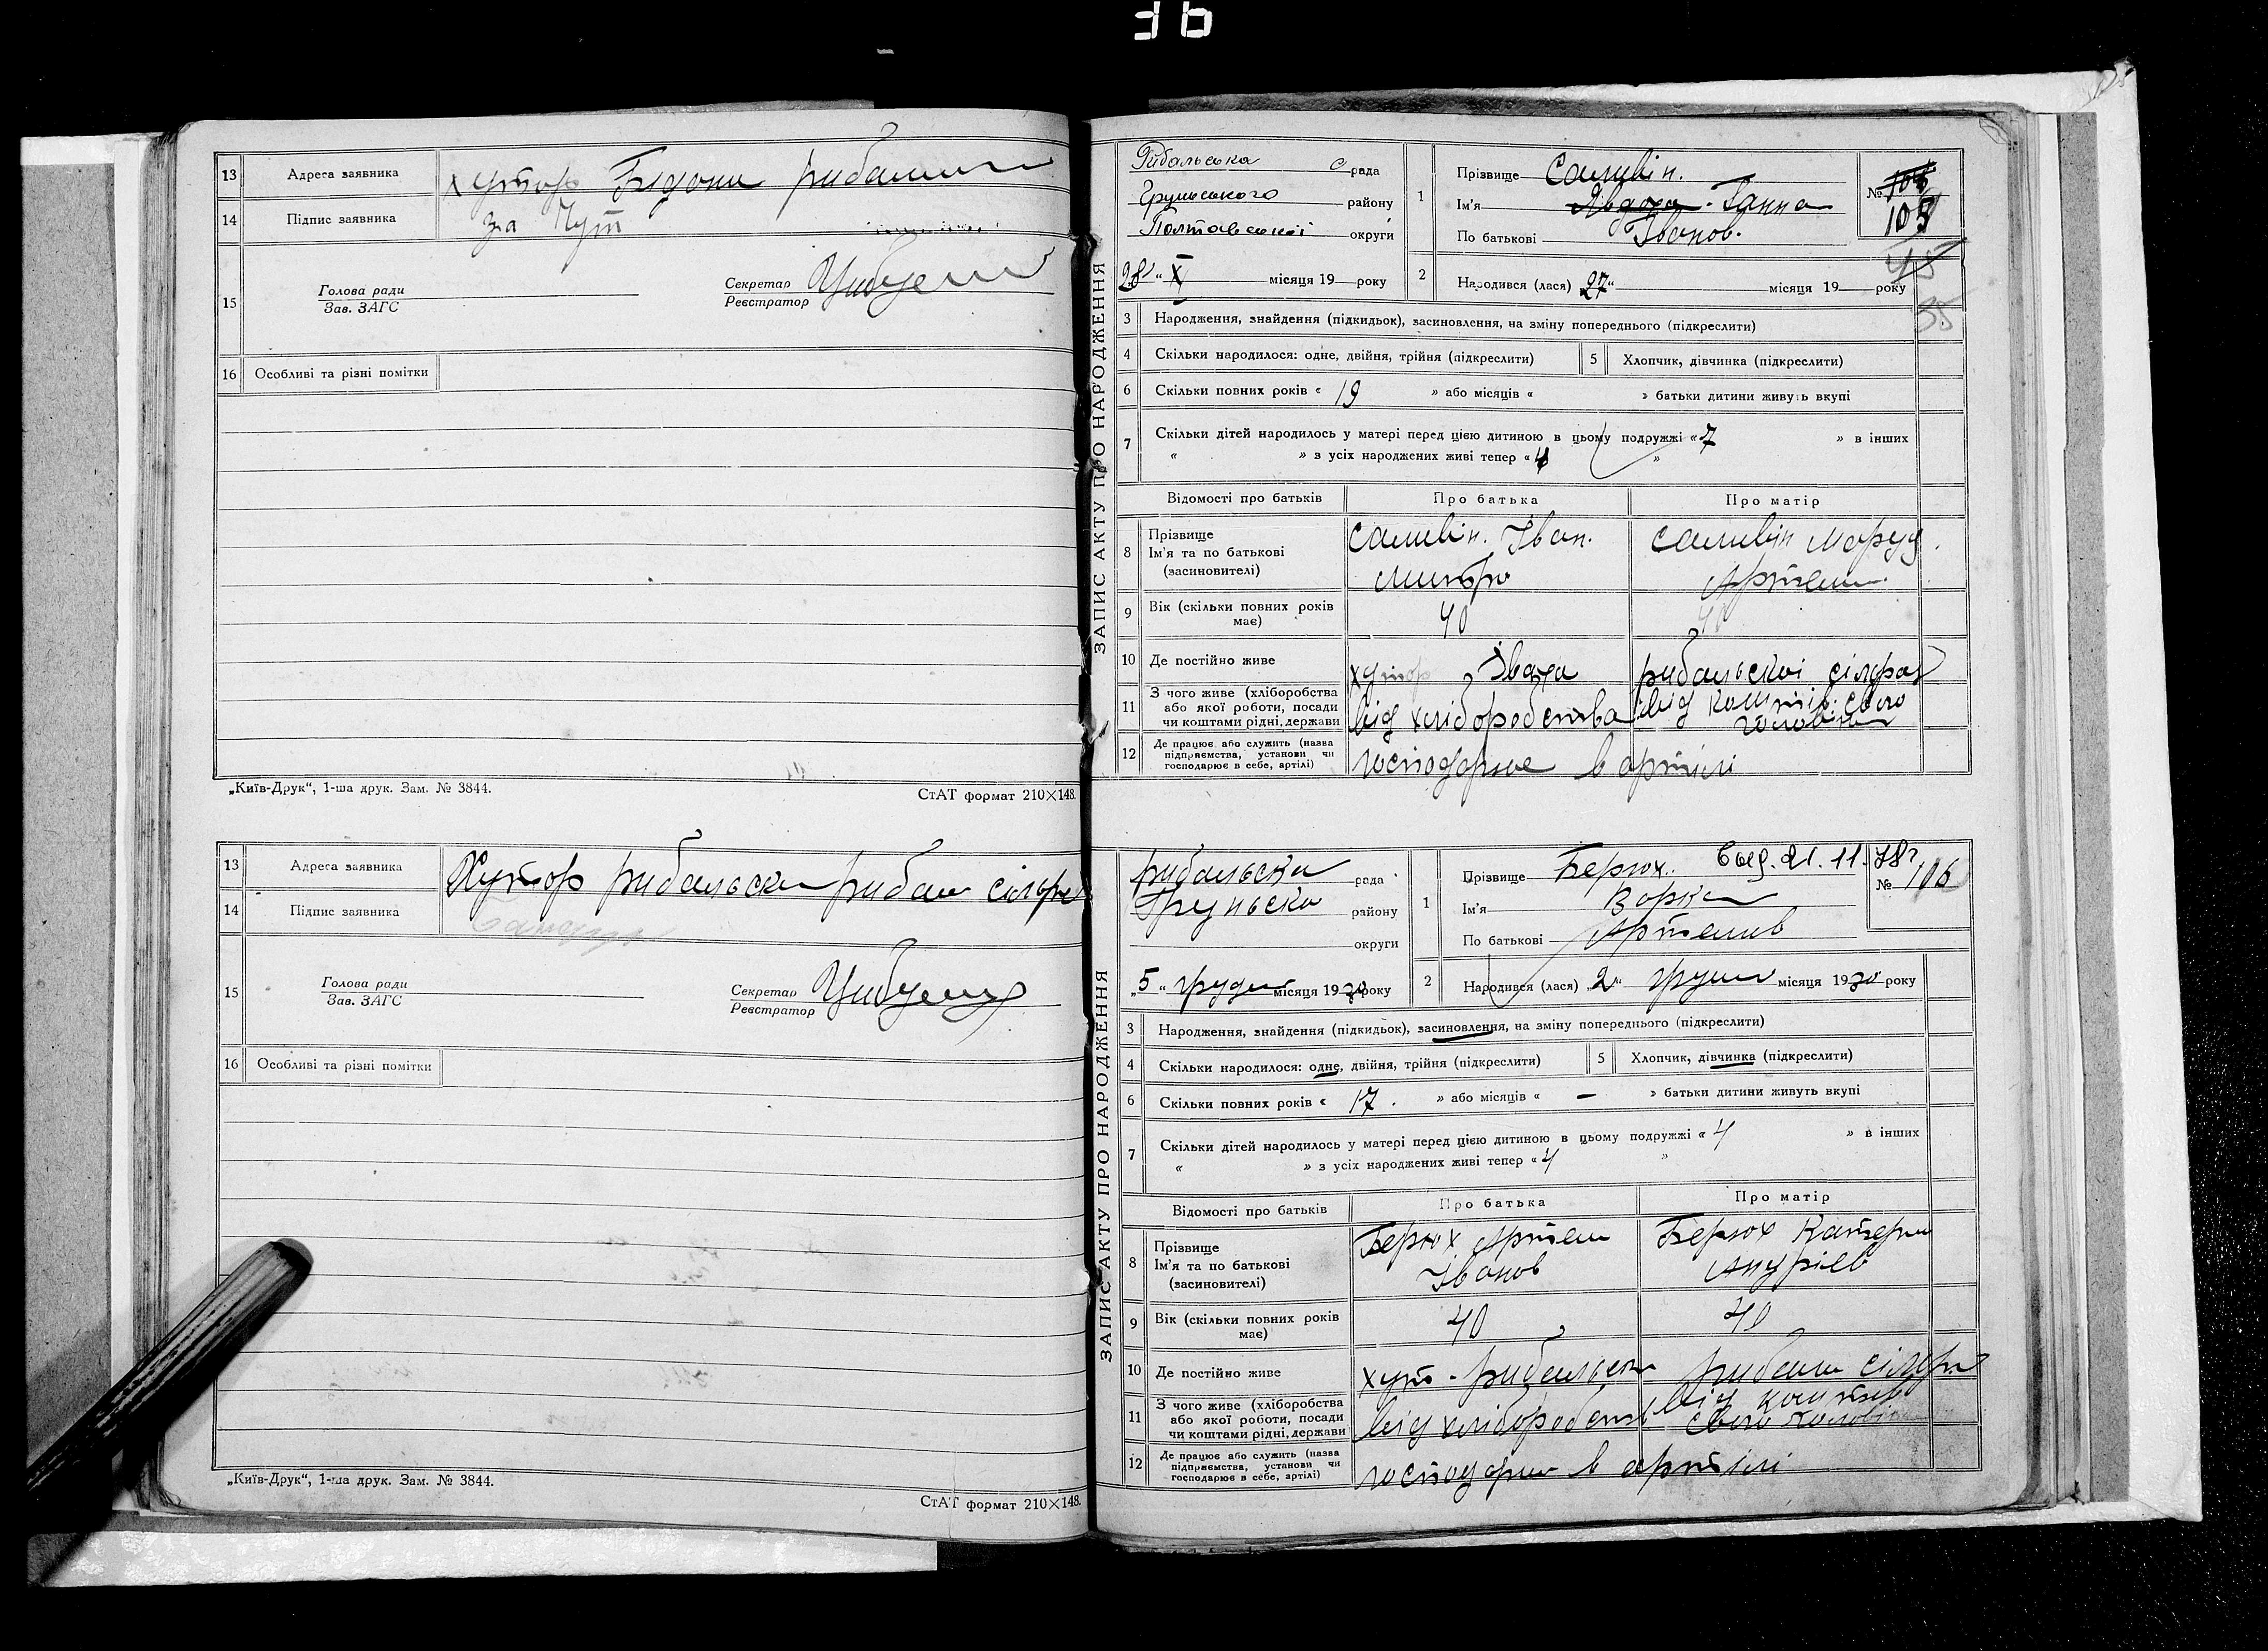 36
13 Адреса заявника хутор
14 Підпис заявника за
15 Голова ради Зав. ЗАГС Секретар Реєстратор
16 Особливі та різні помітки
„Київ-Друк“, 1-ша друк. Зам. № 3844. СтАТ формат 210×148.
13 Адреса заявника Хутор рибальски
14 Підпис заявника
15 Голова ради Зав. ЗАГС Секретар Реєстратор
16 Особливі та різні помітки
„Київ-Друк“, 1-ша друк. Зам. № 3844.
СтАТ формат 210×148.
ЗАПИС АКТУ ПРО НАРОДЖЕННЯ
с рада
Грунського району
Полтавської округи
28 „ X місяця 19 року
1 Прізвище Саливін.
Ім'я Ганна
По батькові Іванов.
№ 105
45
35
2 Народився (лася) „27“ місяця 19 року
3 Народження, знайдення (підкидьок), засиновлення, на зміну попереднього (підкреслити)
4 Скільки народилося: одне, двійня, трійня (підкреслити) 5 Хлопчик, дівчинка (підкреслити)
6 Скільки повних років « 19 » або місяців « » батьки дитини живуть вкупі
7 Скільки дітей народилось у матері перед цією дитиною в цьому подружжі « 7 » в інших
« » з усіх народжених живі тепер « 4 »
Відомості про батьків Про батька Про матір
8 Прізвище Ім'я та по батькові (засиновителі)
Саливін. Іван.
Саливін
Артем.
9 Вік (скільки повних років має) 40 40
10 Де постійно живе хутор рибальскої сілрад
11 З чого живе (хліборобства або якої роботи, посади чи коштами рідні, держави від хліборобства від коштів свого
12 Де працює або служить (назва підприємства, установи чи господарює в себе, артілі) господарює в артілі
ЗАПИС АКТУ ПРО НАРОДЖЕННЯ
рибальска рада
Груньска району
округи
„5“ грудн місяця 1930 року
1 Прізвище Берюх. 21.11.78г
Ім'я Варка
По батькові Артемив
№ 106
2 Народився (лася) „2“ грудн місяця 1930 року
3 Народження, знайдення (підкидьок), засиновлення, на зміну попереднього (підкреслити)
4 Скільки народилося: одне, двійня, трійня (підкреслити) 5 Хлопчик, дівчинка (підкреслити)
6 Скільки повних років « 17. » або місяців « — » батьки дитини живуть вкупі
7 Скільки дітей народилось у матері перед цією дитиною в цьому подружжі « 4 » в інших
« » з усіх народжених живі тепер « 4 »
Відомості про батьків Про батька Про матір
8 Прізвище Ім'я та по батькові (засиновителі)
Берюх Артем Іванов
Берюх Катерин
9 Вік (скільки повних років має) 40 40
10 Де постійно живе хут - рибальски
11 З чого живе (хліборобства або якої роботи, посади чи коштами рідні, держави від хліборобств від коштів свого
12 Де працює або служить (назва підприємства, установи чи господарює в себе, артілі) в артілі